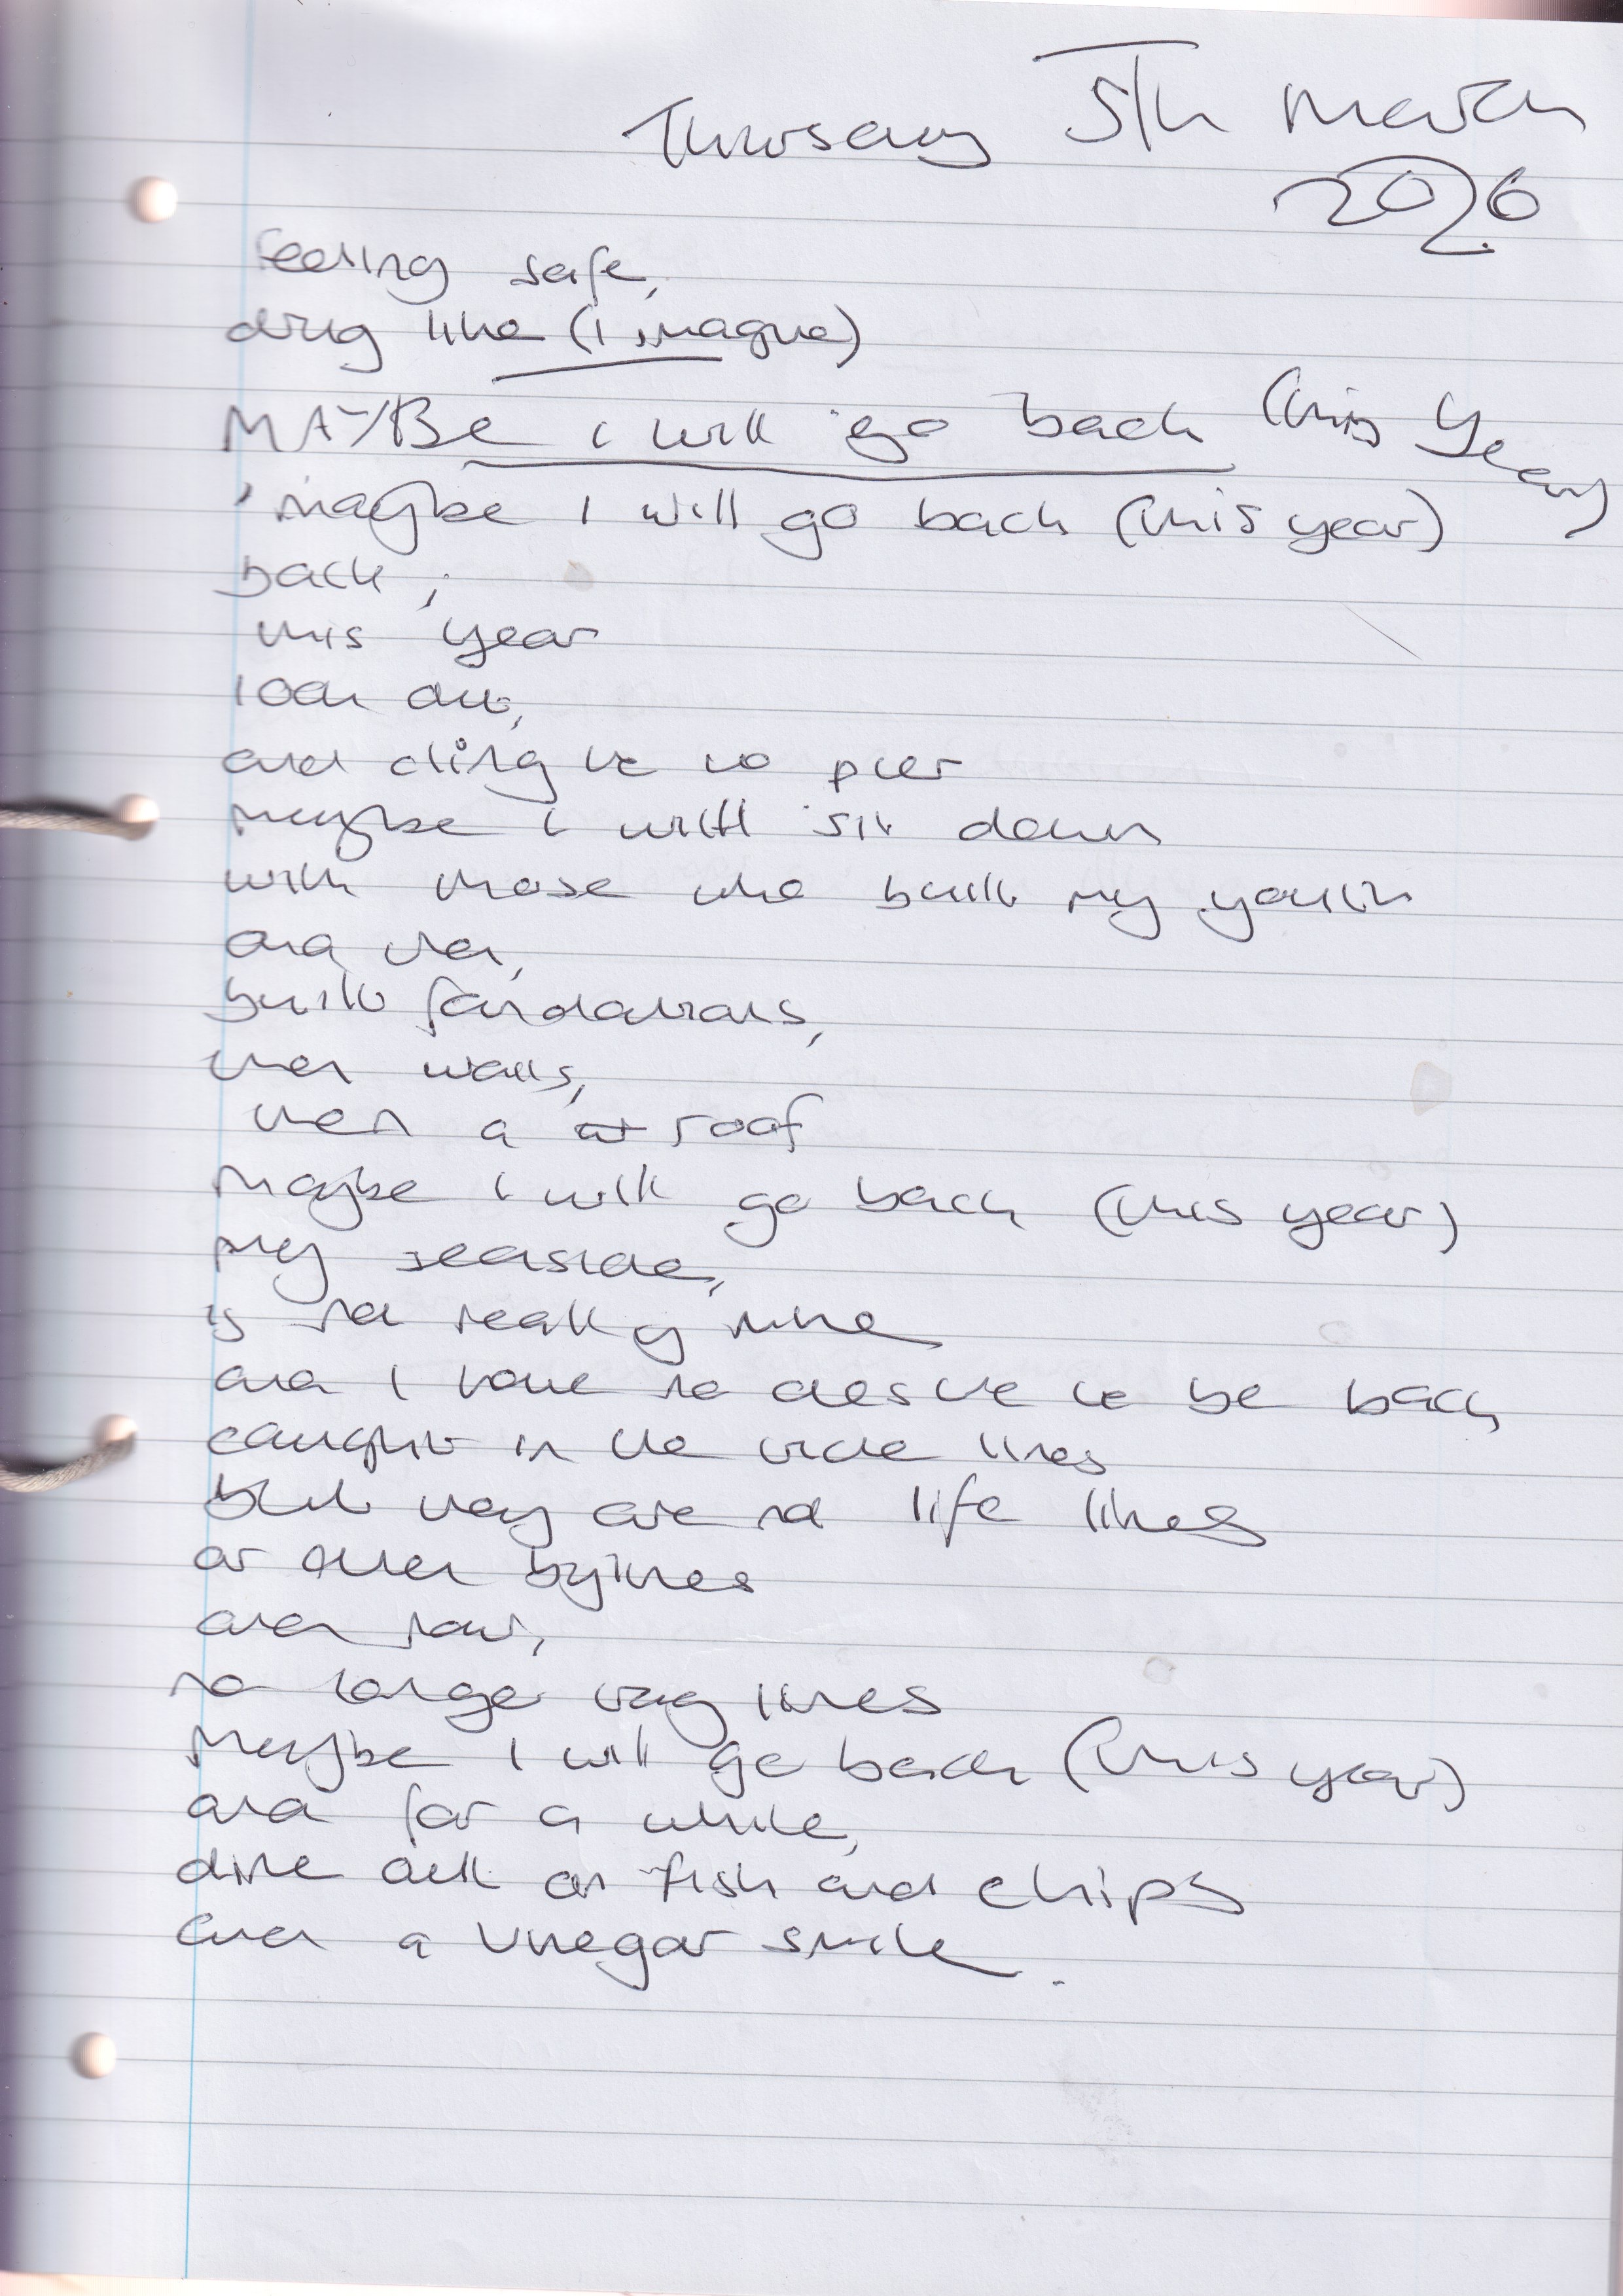 Thursday 5th March
2026
Feeling safe,
drug like (I imagine)
MAYBE i will go back (this year)
, maybe I will go back (this year)
back,
this year
look out,
and cling to to pier
maybe i will sit down
with those who built my youth
and then,
built foundations,
then walls,
then a roof
maybe i will go back (this year)
my seaside,
is not really mine
and I have no desire to be back
caught in the tide lines
but they are not life lines
or even bylines
even now,
no longer tag lines
maybe I will go back (this year)
and for a while,
dine out on fish and chips
even a vinegar smile.